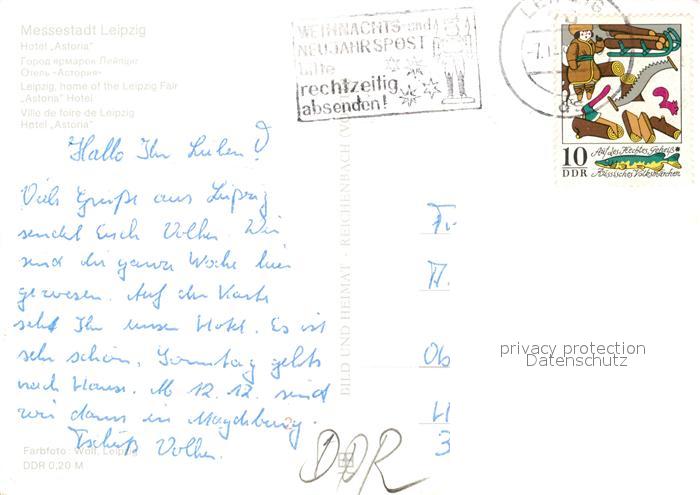 Messestadt Leipzig
Hotel „Astoria"
Город ярмарок Лейпциг
Отель «Астория»
Leipzig, home of the Leipzig Fair
„Astoria" Hotel
Ville de foire de Leipzig
Hotel „Astoria"
WEIHNACHTS- und
NEUJAHRSPOST
bitte
rechtzeitig
absenden!
LEIPZIG
10
DDR
Auf des Hechtes Geheiß
Russisches Volksmärchen
Hallo Ihr Lieben!
Viele Grüße aus Leipzig
sendet Euch Volker. Wir
sind die ganze Woche hier
gewesen. Auf der Karte
seht Ihr unser Hotel. Es ist
sehr schön. Sonntag gehts
nach Hause. Ab 12.12. sind
wir dann in Magdeburg.
Tschüß Volker.
BILD UND HEIMAT · REICHENBACH (V
Fr
A.
Ob
3
privacy protection
Datenschutz
Farbfoto: Wolf, Leipzig
DDR 0,20 M
DDR